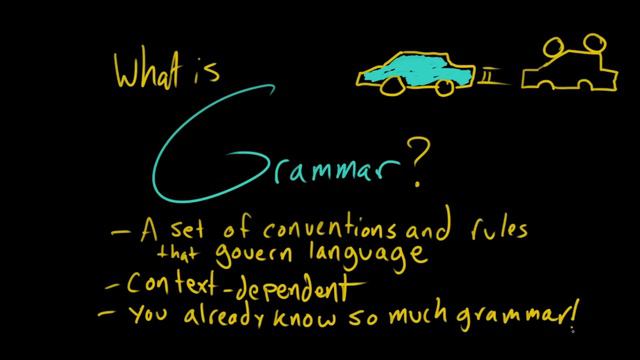 What is
Grammar?
- A set of conventions and rules
that govern language
- Context-dependent
- You already know so much grammar!